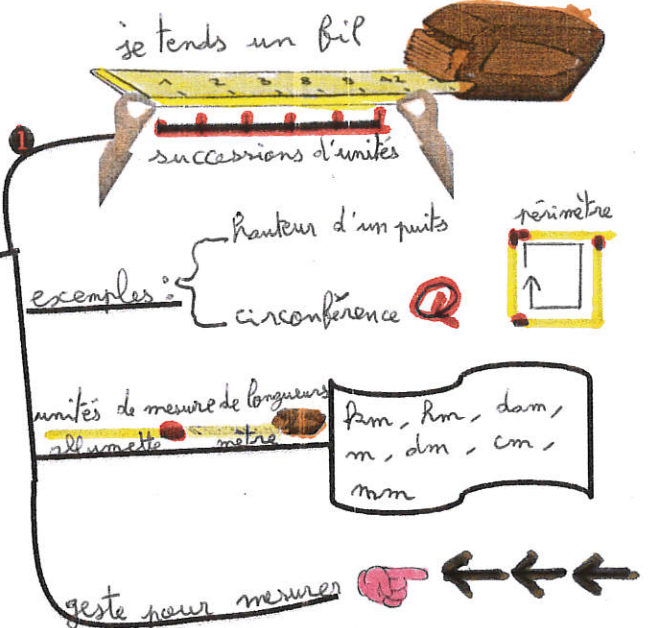 je tends un fil
1 2 3 8 9
1
successions d'unités
exemples :
hauteur d'un puits
circonférence
périmètre
unités de mesure de longueurs
allumette mètre
km, hm, dam,
m, dm, cm,
mm
geste pour mesurer